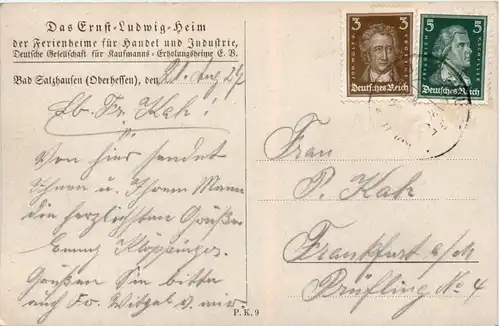 Das Ernst-Ludwig-Heim
der Ferienheime für Handel und Industrie,
Deutsche Gesellschaft für Kaufmanns-Erholungsheime E. V.
Bad Salzhausen (Oberhessen), den 21. Aug 27
Lb. Fr. Kah!
Von hier sendet
Ihnen u. Ihrem Mann
die herzlichsten Grüße
Emmy
Grüßen Sie bitte
auch Fr. Witzel v. mir
P. K. 9
3 3
JOH. WOLFG. GOETHE
Deutsches Reich
5 5
FRIEDRICH V. SCHILLER
Deutsches Reich
Frau
P. Kah
Frankfurt a/M
Prüfling No 4